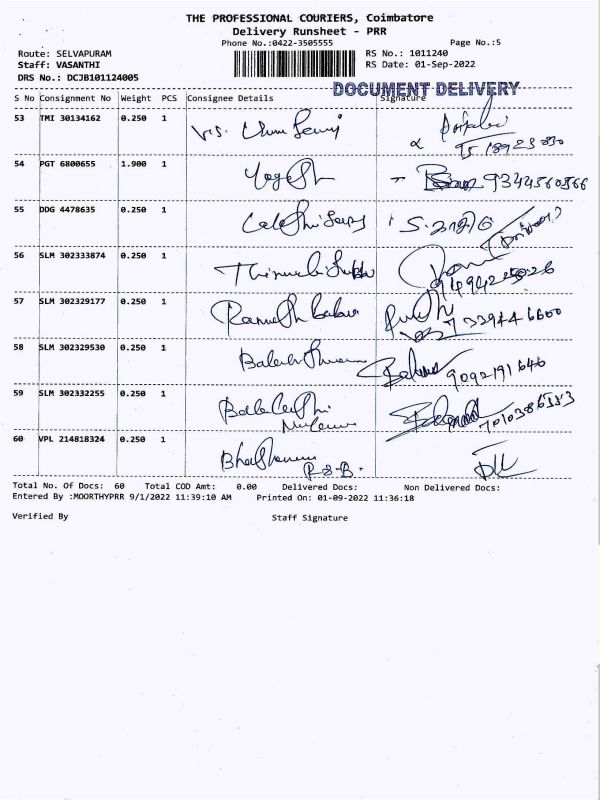 THE PROFESSIONAL COURIERS, Coimbatore
Delivery Runsheet - PRR
Phone No.:0422-3505555 Page No.:5
Route: SELVAPURAM RS No.: 1011240
Staff: VASANTHI RS Date: 01-Sep-2022
DRS No.: DCJB101124005
DOCUMENT DELIVERY
S No Consignment No Weight PCS Consignee Details Signature
53 TMI 30134162 0.250 1 V.S.
54 PGT 6800655 1.900 1 Yogesh 9344560866
55 DDG 4478635 0.250 1
56 SLM 302333874 0.250 1
57 SLM 302329177 0.250 1 Ramesh Babu
58 SLM 302329530 0.250 1 9092191646
59 SLM 302332255 0.250 1
60 VPL 214818324 0.250 1
Total No. Of Docs: 60 Total COD Amt: 0.00 Delivered Docs: Non Delivered Docs:
Entered By :MOORTHYPRR 9/1/2022 11:39:10 AM Printed On: 01-09-2022 11:36:18
Verified By Staff Signature